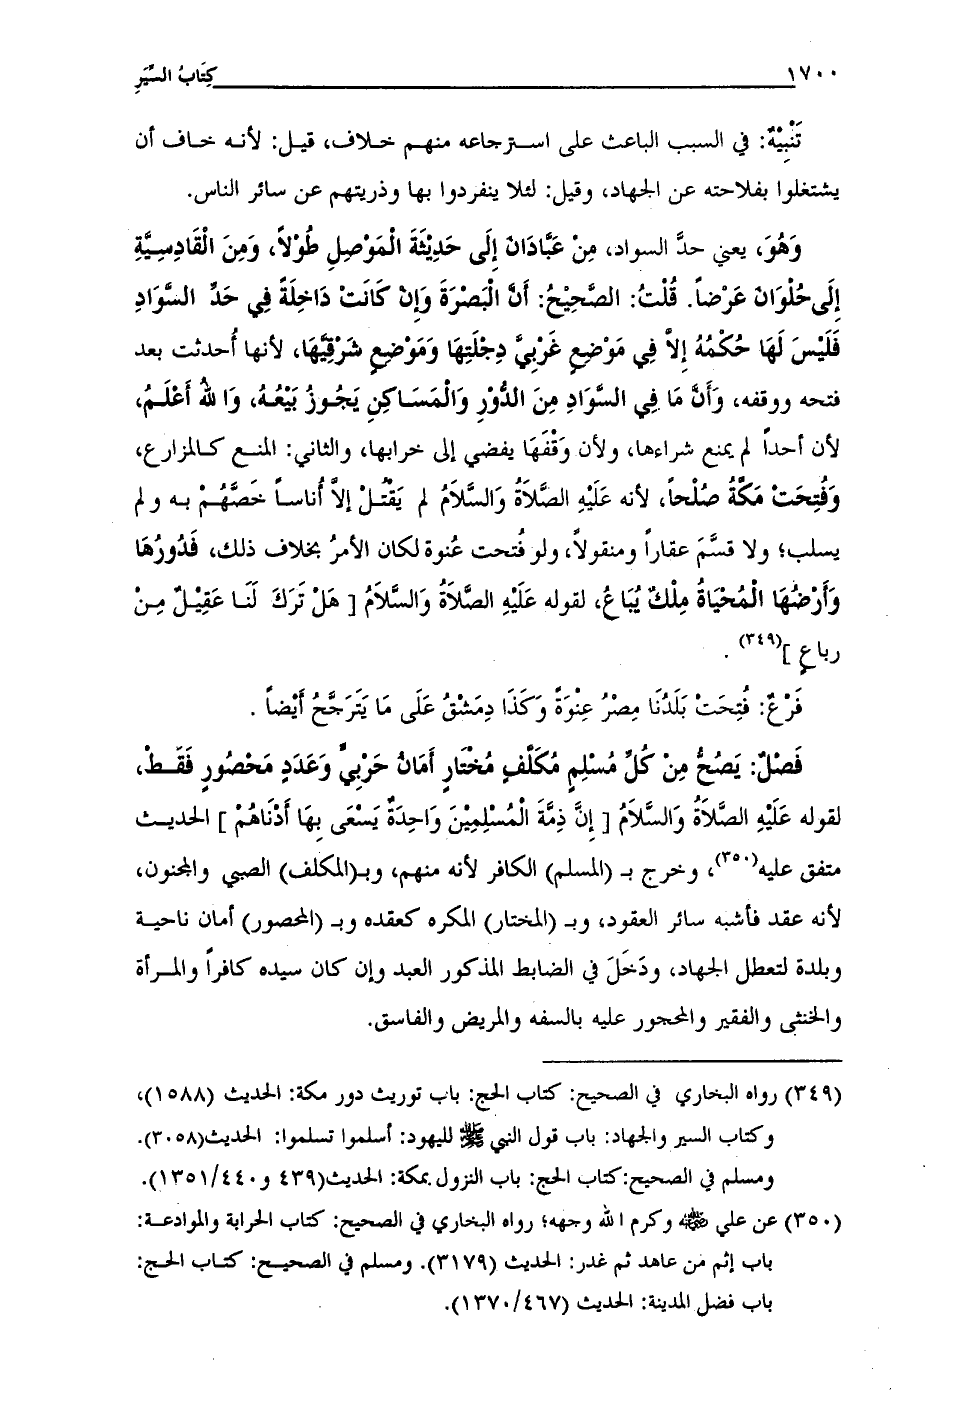 ١٧٠٠ كِتَابُ السِّيَرِ
تَنْبِيْهٌ: في السبب الباعث على استرجاعه منهم خلاف، قيل: لأنه خاف أن
يشتغلوا بفلاحته عن الجهاد، وقيل: لئلا ينفردوا بها وذريتهم عن سائر الناس.
وَهُوَ، يعني حدَّ السواد، مِنْ عَبَّادَانَ إِلَى حَدِيْثَةَ الْمَوْصِلِ طُوْلاً، وَمِنَ الْقَادِسِيَّةِ
إِلَى حُلْوَانَ عَرْضاً. قُلْتُ: الصَّحِيْحُ: أَنَّ الْبَصْرَةَ وَإِنْ كَانَتْ دَاخِلَةً فِي حَدِّ السَّوَادِ
فَلَيْسَ لَهَا حُكْمُهُ إِلاَّ فِي مَوْضِعِ غَرْبِيِّ دِجْلَتِهَا وَمَوْضِعِ شَرْقِيِّهَا، لأنها أُحدثت بعد
فتحه ووقفه، وَأَنَّ مَا فِي السَّوَادِ مِنَ الدُّوْرِ وَالْمَسَاكِنِ يَجُوزُ بَيْعُهُ، وَاللهُ أَعْلَمُ،
لأن أحداً لم يمنع شراءها، ولأن وَقْفَهَا يفضي إلى خرابها، والثاني: المنع كالمزارع،
وَفُتِحَتْ مَكَّةُ صُلْحاً، لأنه عَلَيْهِ الصَّلاَةُ وَالسَّلاَمُ لم يَقْتُلْ إِلاَّ أُناساً خَصَّهُمْ به ولم
يسلب؛ ولا قسَّمَ عقاراً ومنقولاً، ولو فُتحت عُنوة لكان الأمرُ بخلاف ذلك، فَدُورُهَا
وَأَرْضُهَا الْمُحْيَاةُ مِلْكٌ يُبَاعُ، لقوله عَلَيْهِ الصَّلاَةُ وَالسَّلاَمُ [ هَلْ تَرَكَ لَنَا عَقِيْلٌ مِنْ
رباعٍ ](٣٤٩) .
فَرْعٌ: فُتِحَتْ بَلَدُنَا مِصْرُ عِنْوَةً وَكَذَا دِمَشْقُ عَلَى مَا يَتَرَجَّحُ أَيْضاً .
فَصْلٌ: يَصُحُّ مِنْ كُلِّ مُسْلِمٍ مُكَلَّفٍ مُخْتَارٍ أَمَانُ حَرْبِيٍّ وَعَدَدٍ مَحْصُورٍ فَقَطْ،
لقوله عَلَيْهِ الصَّلاَةُ وَالسَّلاَمُ [ إِنَّ ذِمَّةَ الْمُسْلِمِيْنَ وَاحِدَةٌ يَسْعَى بِهَا أَدْنَاهُمْ ] الحديث
متفق عليه(٣٥٠)، وخرج بـ (المسلم) الكافر لأنه منهم، وبـ(المكلف) الصبي والمجنون،
لأنه عقد فأشبه سائر العقود، وبـ (المختار) المكره كعقده وبـ (المحصور) أمان ناحية
وبلدة لتعطل الجهاد، ودَخَلَ في الضابط المذكور العبد وإن كان سيده كافراً والمرأة
والخنثى والفقير والمحجور عليه بالسفه والمريض والفاسق.
(٣٤٩) رواه البخاري في الصحيح: كتاب الحج: باب توريث دور مكة: الحديث (١٥٨٨)،
وكتاب السير والجهاد: باب قول النبي ﷺ لليهود: أسلموا تسلموا: الحديث(٣٠٥٨).
ومسلم في الصحيح:كتاب الحج: باب النزول بمكة: الحديث(٤٣٩ و٤٤٠/١٣٥١).
(٣٥٠) عن علي ﷺ وكرم الله وجهه؛ رواه البخاري في الصحيح: كتاب الحرابة والموادعة:
باب إثم من عاهد ثم غدر: الحديث (٣١٧٩). ومسلم في الصحيح: كتاب الحج:
باب فضل المدينة: الحديث (١٣٧٠/٤٦٧).